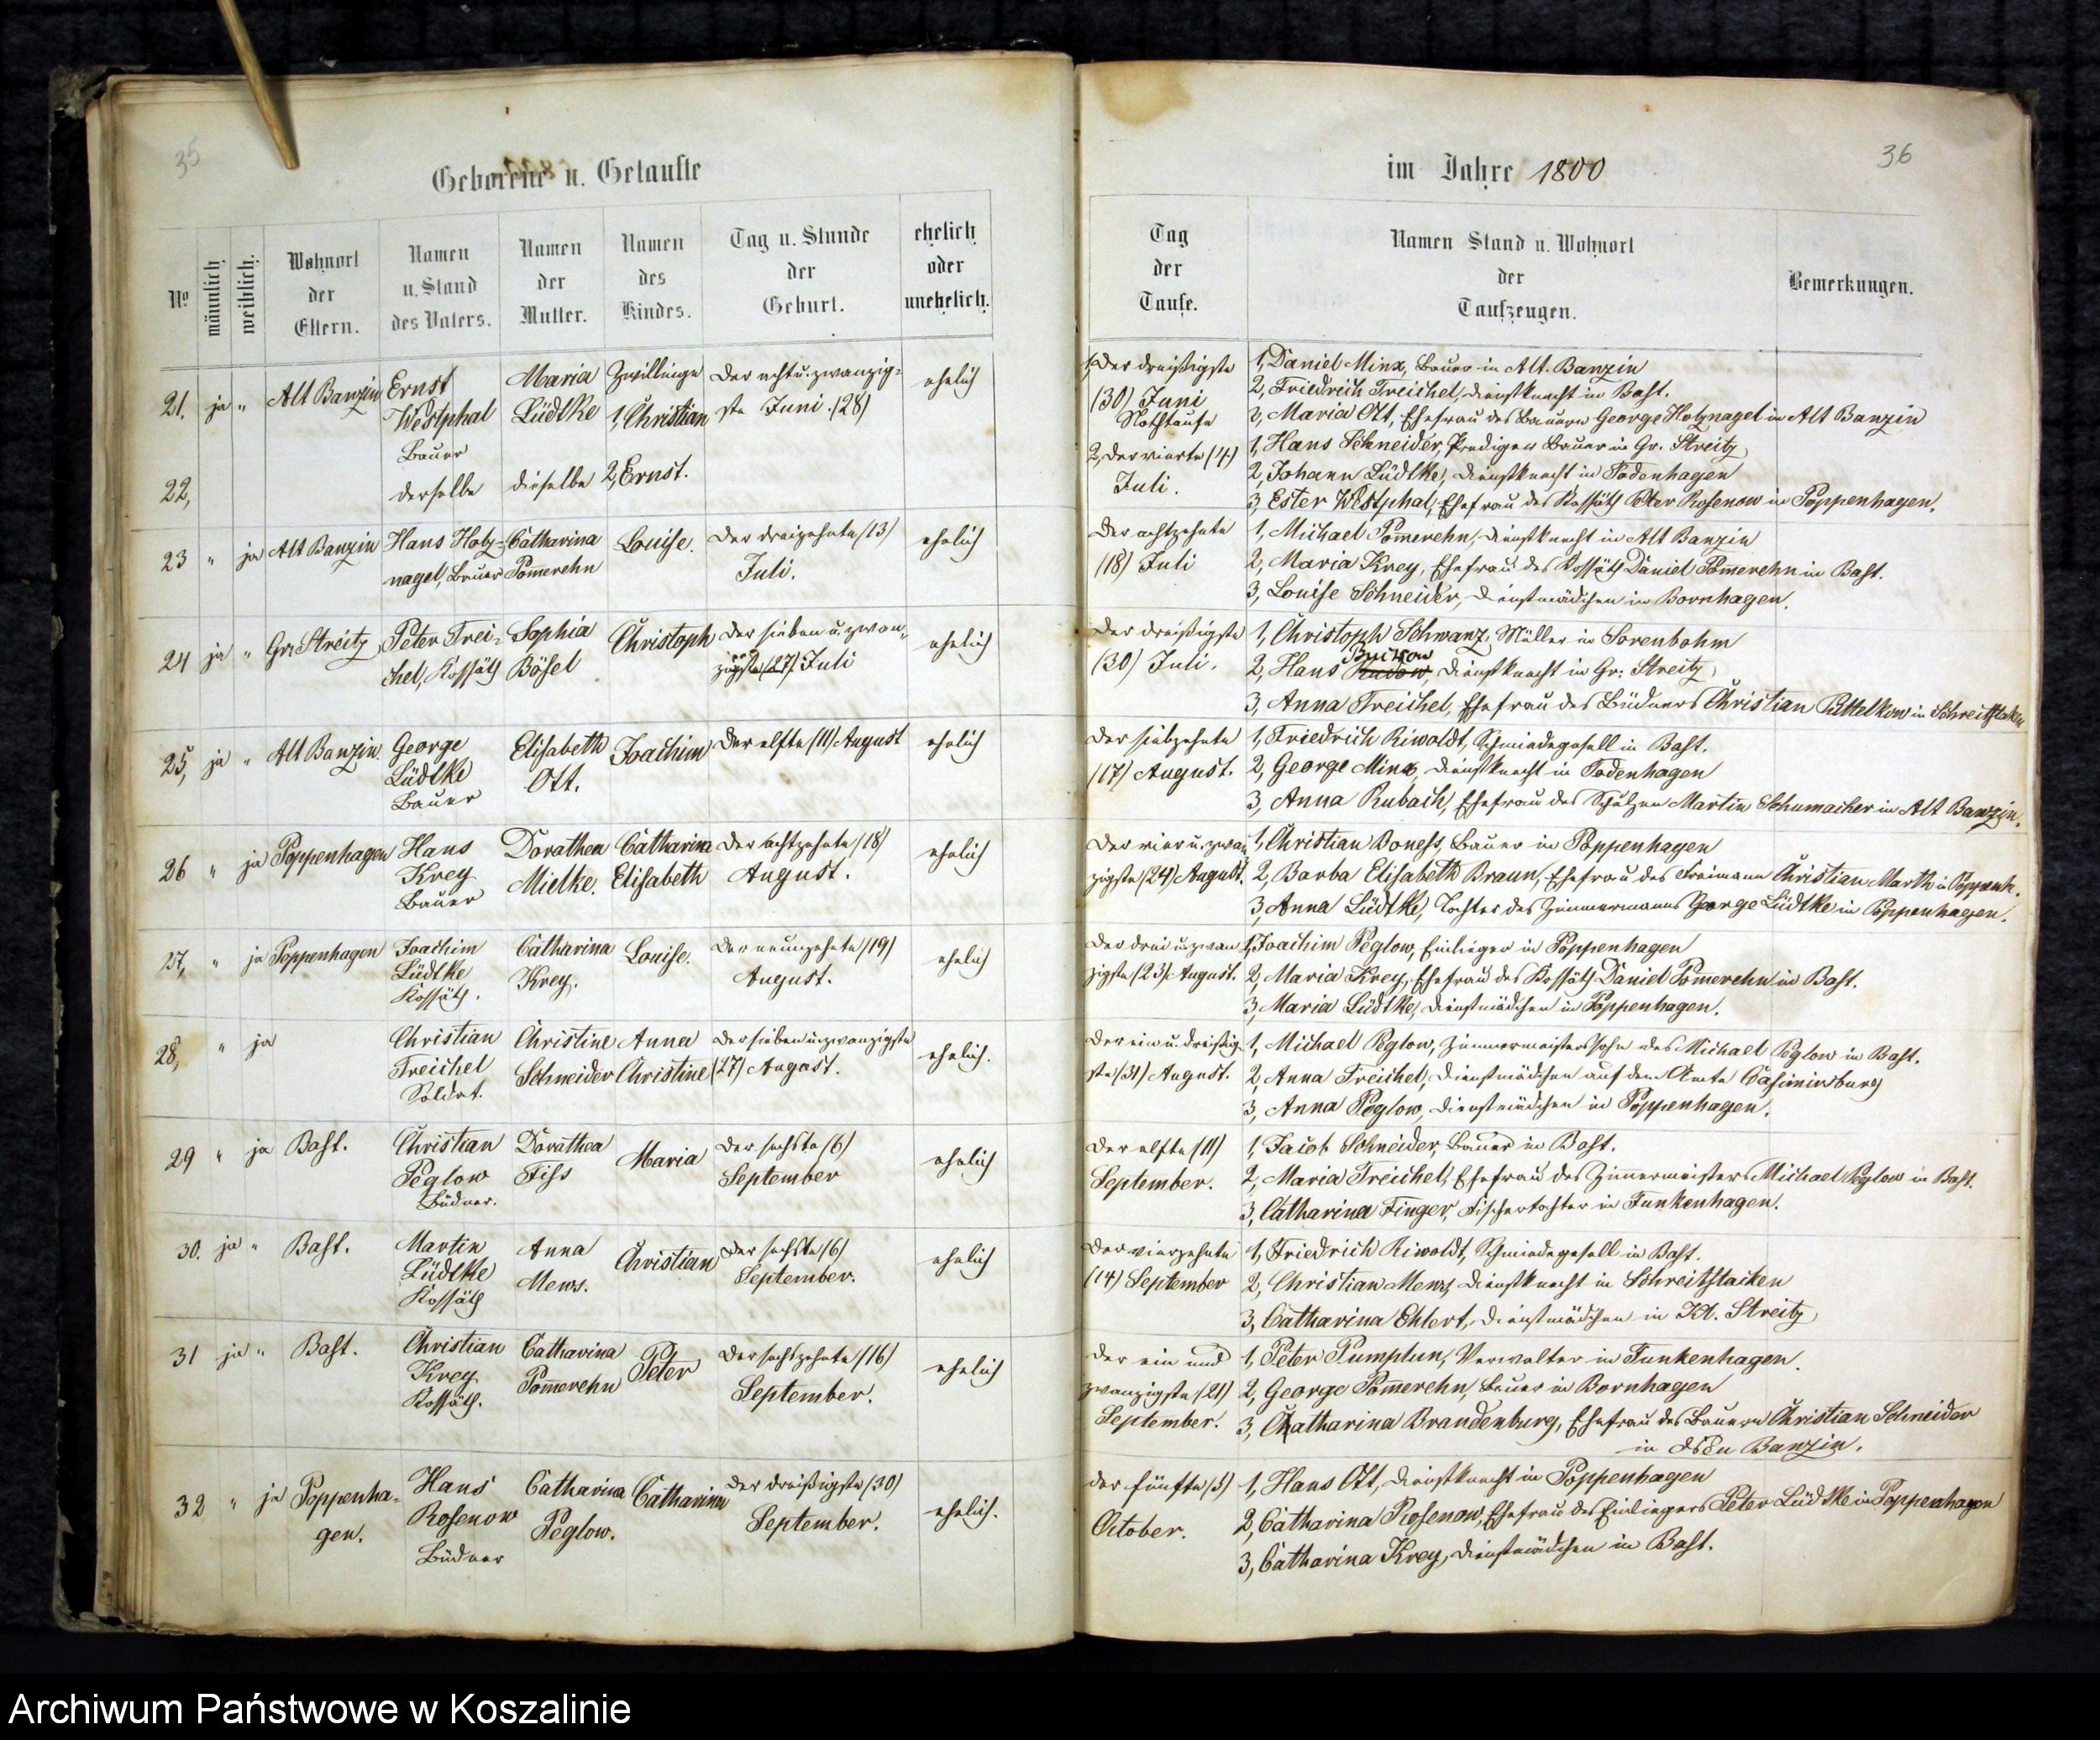 35
Geborene u. Getaufte
No
männlich
weiblich.
Wohnort
der
Eltern.
Namen
u. Stand
des Vaters.
Namen
der
Mutter.
Namen
des
Kindes.
Tag u. Stunde
der
Geburt.
ehelich
oder
unehelich.
21. ja " Alt Banzin Ernst Westphal Bauer Maria Lüdtke Zwillinge 1, Christian Der acht u. zwanzig= ste Juni (28) ehelich
22, derselbe dieselbe 2, Ernst.
23 " ja Alt Banzin Hans Holz= nagel, Bauer Catharina Pom̄erehn Louise. Der dreizehnte (13) Juli. ehelich
24 ja " Gr. Streitz Peter Trei= chel, Kossäth Sophia Bösel Christoph Der sieben u. zwan= zigste (27) Juli ehelich
25, ja " Alt Banzin. George Lüdtke Bauer Elisabeth Ott. Joachim Der elfte (11) August ehelich
26 " ja Poppenhagen Hans Krey Bauer Dorathea Mielke. Catharina Elisabeth Der achtzehnte (18) August. ehelich
27, " ja Poppenhagen Joachim Lüdtke Kossäth. Catharina Krey. Louise. Der neunzehnte (19) August. ehelich
28, " ja Christian Treichel Soldat. Christine Schneider Anna Christine Der sieben u. zwanzigste (27) August. ehelich.
29 " ja Bast. Christian Peglow Büdner. Dorathea Fiss Maria Der sechste (6) September ehelich
30. ja " Bast. Martin Lüdtke Kossäth Anna Mews. Christian Der sechste (6) September. ehelich
31 ja " Bast. Christian Krey Kossäth. Catharina Pom̄erehn Peter Der sechszehnte (16) September. ehelich
32 " ja Poppenha= gen. Hans Rosenow Büdner Catharina Peglow. Catharina Der dreißigste (30) September. ehelich.
im Jahre 1800
36
Tag
der
Taufe.
Namen Stand u. Wohnort
der
Taufzeugen.
Bemerkungen.
1, Der dreißigste (30) Juni Nothtaufe
1, Daniel Minx, Bauer in Alt. Banzin
2, Friedrich Treichel, Dienstknecht in Bast.
3, Maria Ott, Ehefrau des Bauern George Holznagel in Alt Banzin
2, Der vierte (4) Juli.
1, Hans Schneider, Bauer in Gr. Streitz
2, Johann Lüdtke, Dienstknecht in Todenhagen
3, Ester Westphal, Ehefrau des Kossäth Peter Rosenow in Poppenhagen.
Der achtzehnte (18) Juli
1, Michael Pom̄erehn, Dienstknecht in Alt Banzin
2, Maria Krey, Ehefrau des Kossäth Daniel Pom̄erehn in Bast.
3, Louise Schneider, Dienstmädchen in Bornhagen.
Der dreißigste (30) Juli.
1, Christoph Schwanz, Müller in Sorenbohm
2, Hans Buckow, Dienstknecht in Gr: Streitz
3, Anna Treichel, Ehefrau des Büdners Christian Puttelkow in Schreitstaken
Der siebzehnte (17) August.
1, Friedrich Riwoldt, Schmiedegesell in Bast.
2, George Minx, Dienstknecht in Todenhagen
3, Anna Rubach, Ehefrau des Schulzen Martin Schumacher in Alt Banzin.
Der vier u. zwan= zigste (24) August.
1, Christian Boness, Bauer in Poppenhagen
2, Barba Elisabeth Braun, Ehefrau des Freimann Christian Marth in Poppenh.
3, Anna Lüdtke, Tochter des Zimmermanns George Lüdtke in Poppenhagen.
Der drei u. zwan zigste (23) August.
1, Joachim Peglow, Einlieger in Poppenhagen
2, Maria Krey, Ehefrau des Kossäth Daniel Pom̄erehn in Bast.
3, Maria Lüdtke, Dienstmädchen in Poppenhagen.
Der ein u. dreißig= ste (31) August.
1, Michael Peglow, Zimmermeisters Sohn des Michael Peglow in Bast.
2, Anna Treichel, Dienstmädchen auf dem Amte Casimirsburg
3, Anna Peglow, Dienstmädchen in Poppenhagen.
Der elfte (11) September.
1, Jacob Schneider, Bauer in Bast.
2, Maria Treichel, Ehefrau des Zimmermeisters Michael Peglow in Bast.
3, Catharina Finger, Fischertochter in Funkenhagen.
Der vierzehnte (14) September
1, Friedrich Riwoldt, Schmiedegesell in Bast.
2, Christian Mews, Dienstknecht in Schreitstacken
3, Catharina Ehlert, Dienstmädchen in Kl. Streitz
Der ein und zwanzigste (21) September.
1, Peter Pumplun, Verwalter in Funkenhagen.
2, George Pom̄erehn, Bauer in Bornhagen
3, Catharina Brandenburg, Ehefrau des Bauern Christian Schneider
in Banzin.
Der fünfte (5) October.
1, Hans Ott, Dienstknecht in Poppenhagen
2, Catharina Rosenow, Ehefrau des Einliegers Peter Lüdtke in Poppenhagen
3, Catharina Krey, Dienstmädchen in Bast.
Archiwum Państwowe w Koszalinie